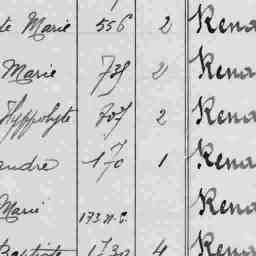 te Marie 556 2 Rena
Marie 735 2 Rena
Hyppolyte 807 2 Rena
andre 170 1 Rena
Marie 173 N.C. Rena
Baptiste 1730 4 Rena